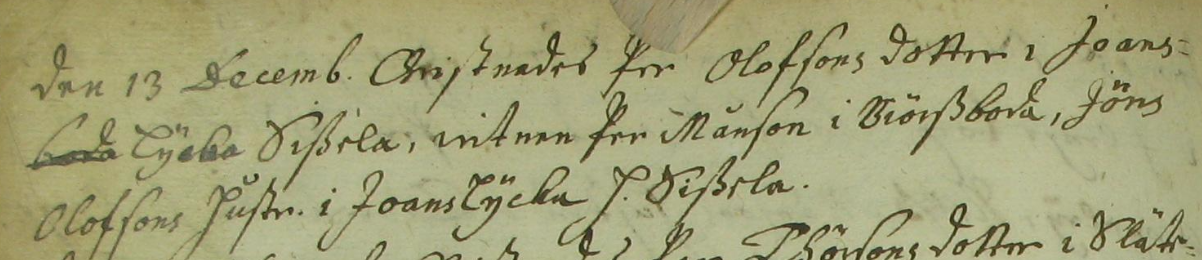 den 13 Decemb. Christnades Per Olofsons dotter i Joans=
boda Lÿcka Sißela, witnen Per Månson i Biörßboda, Jöns
Olofsons Hustr. i JoansLÿcka H. Sißela.
Per Thörsons dotter i Släte-